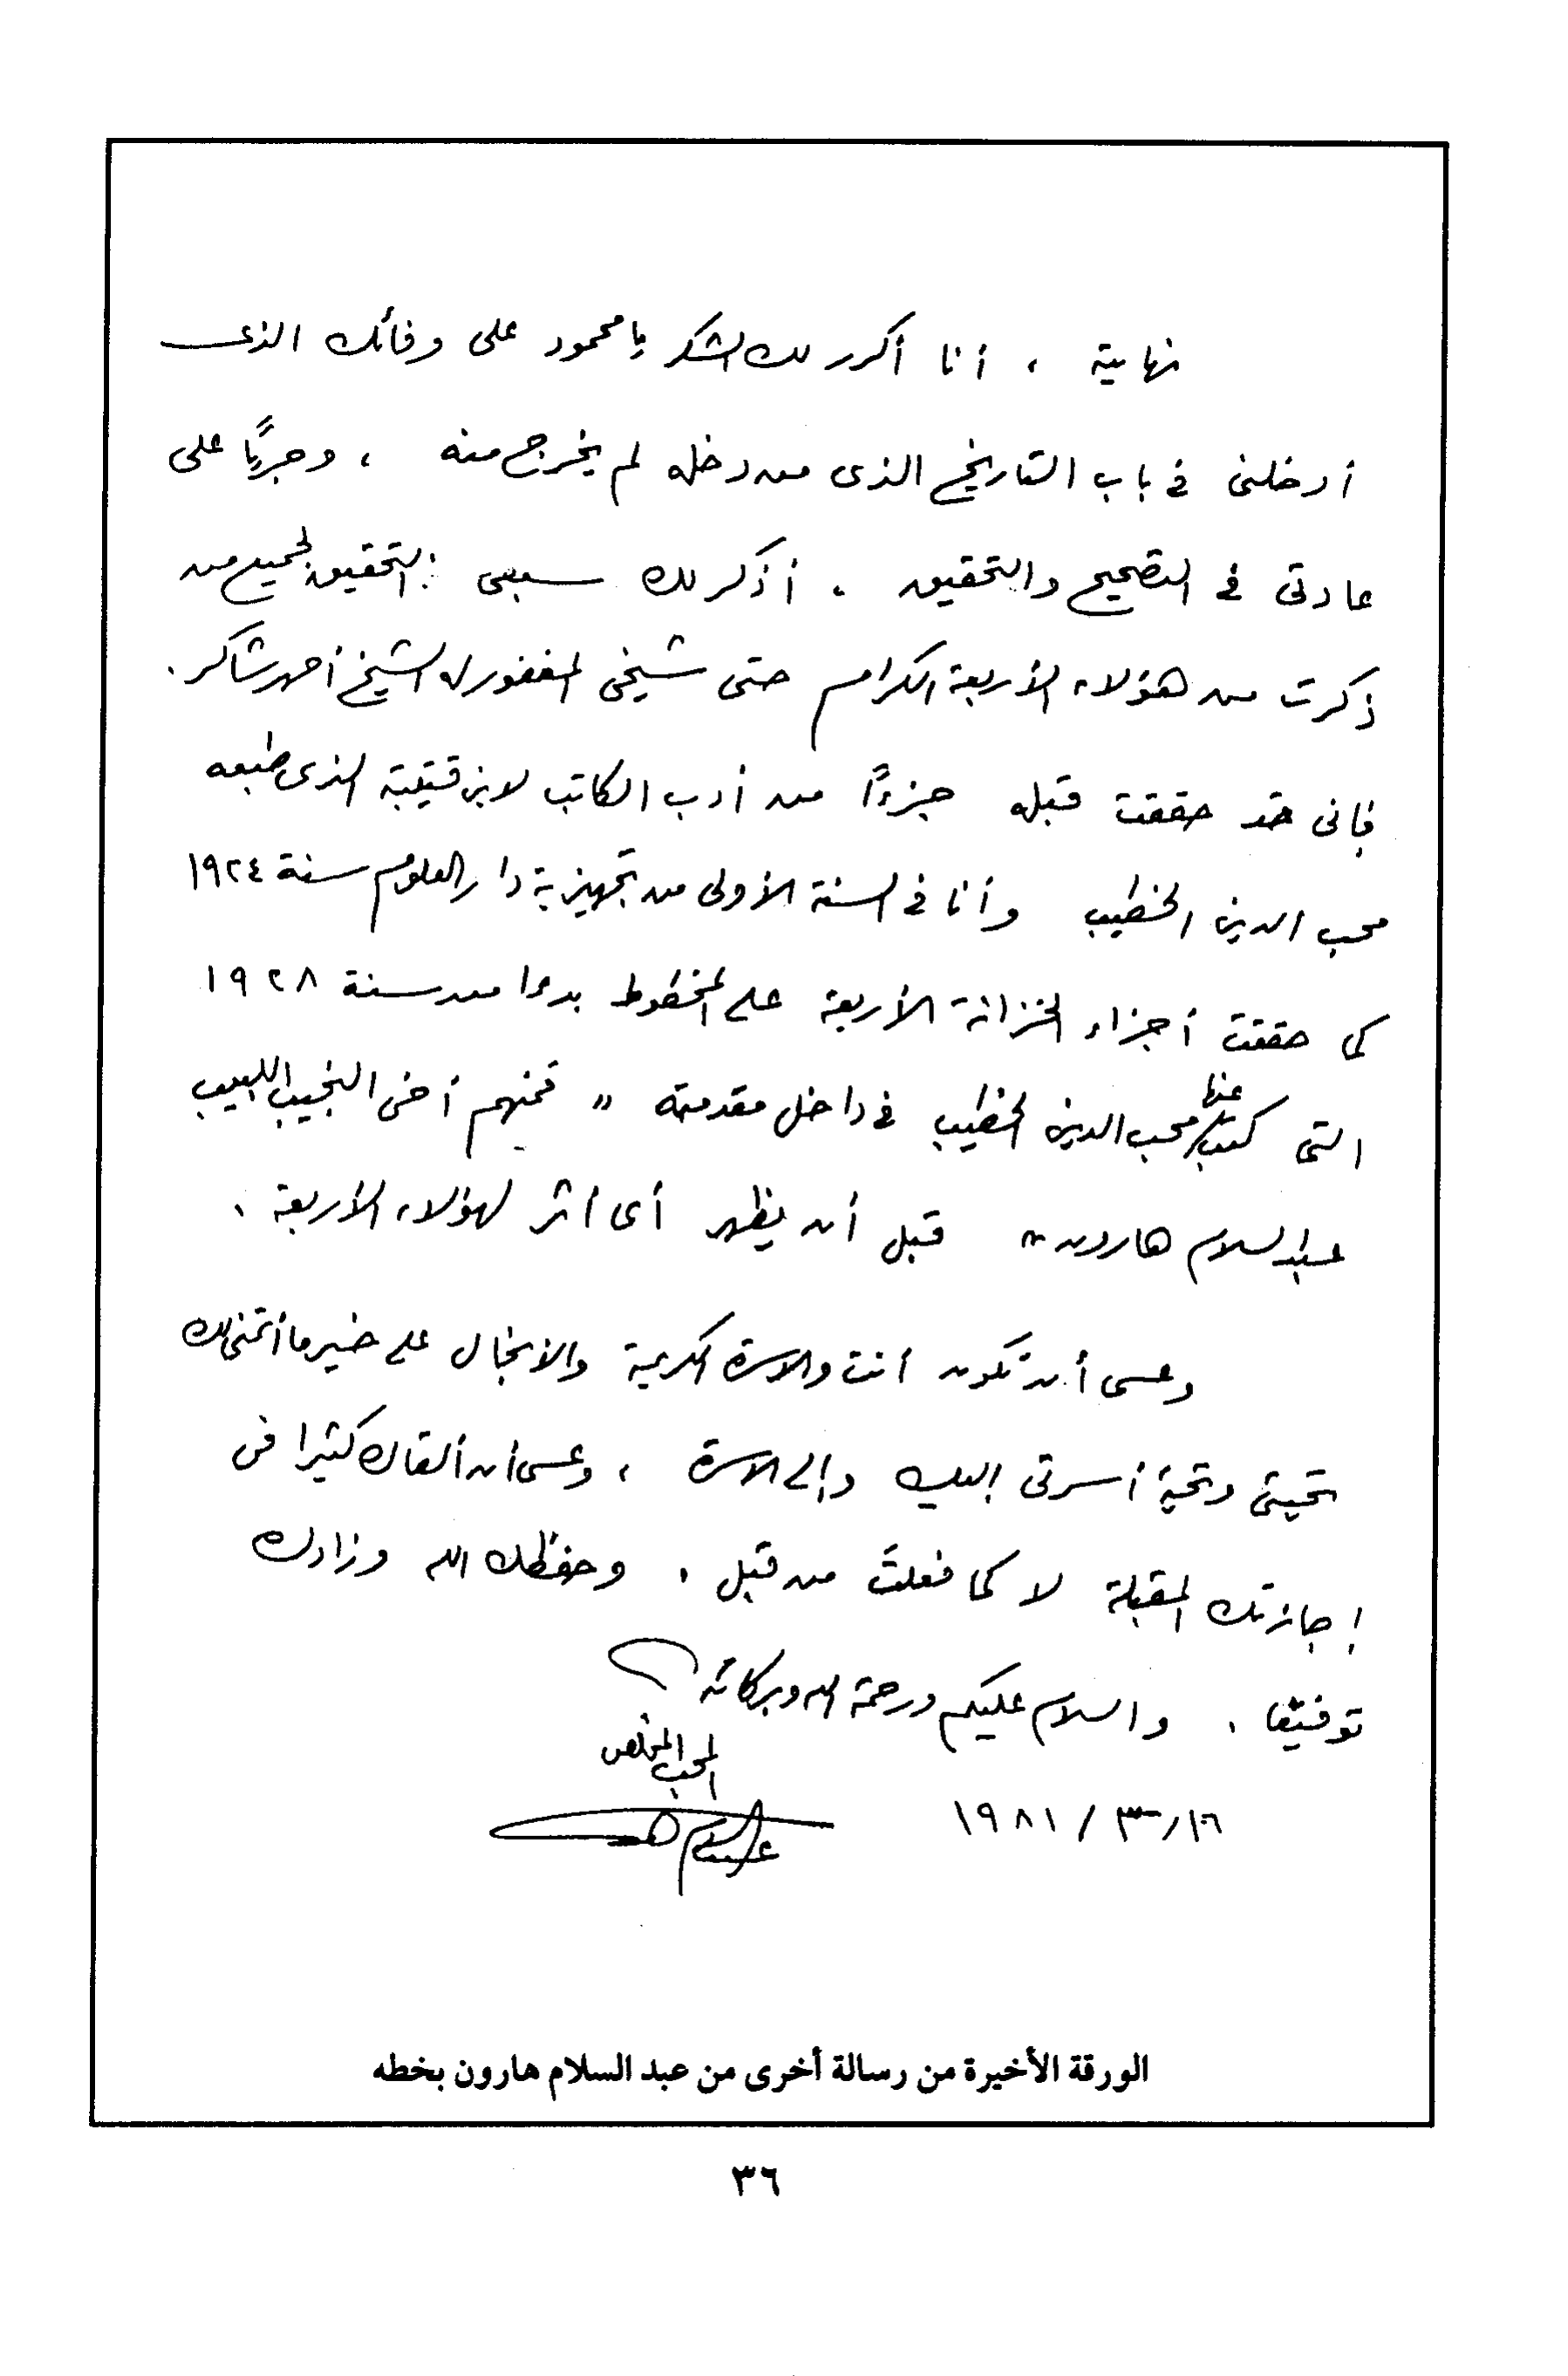 نهاية ، أنا أكرر لك الشكر يا محمود على وفائك الذى
أدخلنى فى باب التاريخ الذى من دخله لم يخرج منه ، وجريًا على
عادتى فى التصحيح والتحقيق ، أذكر لك سبقى فى التحقيق لجميع من
ذكرت من هؤلاء الأربعة الكرام حتى شيخى المغفور له الشيخ أحمد شاكر .
فإنى قد حققت قبله جزءًا من أدب الكاتب لابن قتيبة الذى طبعه
محب الدين الخطيب وأنا فى السنة الأولى من تجهيزية دار العلوم سنة ١٩٢٤
كما حققت أجزاء الخزانة الأربعة على المخطوط بدءا من سنة ١٩٢٨
التى كتب عنها محب الدين الخطيب فى داخل مقدمته " فمنهم أخى النجيب اللبيب
عبد السلام هارون " قبل أن يظهر أى أثر لهؤلاء الأربعة .
وعسى أن تكون أنت والاسرة الكريمة والأنجال على خير ما أتمنى لك
تحيتى وتحية أسرتى إليك وإلى الاسرة ، وعسى أن ألقاك كثيرا فى
إجازتك المقبلة لا كما فعلت من قبل . وحفظك الله وزادك
توفيقا . والسلام عليكم ورحمة الله وبركاته
المحب المخلص
١٦/٣/١٩٨١
عبد السلام هارون
الورقة الأخيرة من رسالة أخرى من عبد السلام هارون بخطه
٣٦